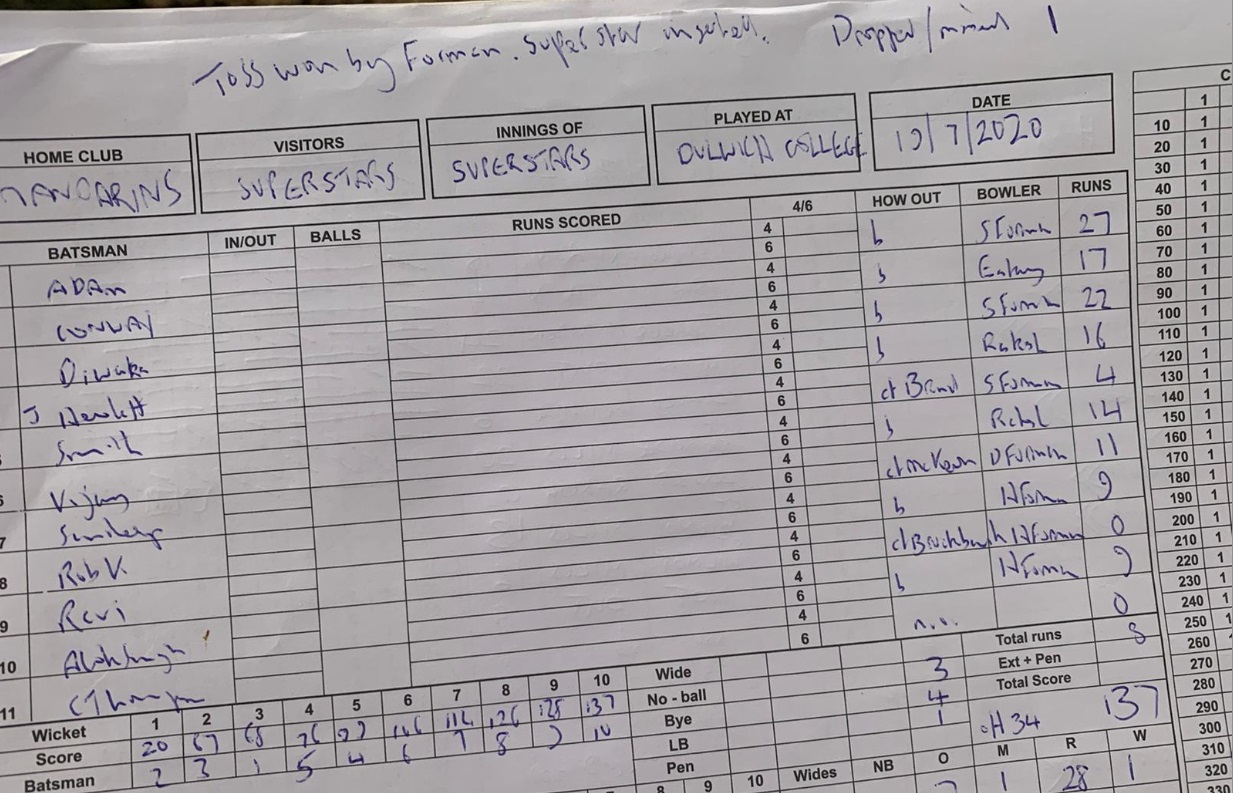 Toss won by Forman. Superstar inserted. Dropped/missed 1
HOME CLUB VISITORS INNINGS OF PLAYED AT DATE
MANDARINS SUPERSTARS SUPERSTARS DULWICH COLLEGE 19/7/2020
BATSMAN IN/OUT BALLS RUNS SCORED 4/6 HOW OUT BOWLER RUNS
ADAM 4 6 b S Forman 27
CONWAY 4 6 b 17
Diwaka 4 6 b S Forman 22
J Hewlett 4 6 b 16
Smith 4 6 ct Brand S Forman 4
6 Vijay 4 6 b 14
7 4 6 ct McKeown D Forman 11
8 Rob V. 4 6 b H Forman 9
9 Ravi 4 6 H Forman 0
10 4 6 b H Forman 9
11 C Thompson 4 6 n.o. 0
Wicket 1 2 3 4 5 6 7 8 9 10
Score 20 67 68 126 137
Batsman 2 3 1 5 4 6 7 8 9 10
Wide 3 Total runs 8
No - ball 4 Ext + Pen
Bye 1 Total Score 137
LB
Pen
8 9 10 Wides NB O M R W
1 28 1
C
1
10 1
20 1
30 1
40 1
50 1
60 1
70 1
80 1
90 1
100 1
110 1
120 1
130 1
140 1
150 1
160 1
170 1
180 1
190 1
200 1
210 1
220 1
230 1
240 1
250 1
260
270
280
290
300
310
320
330